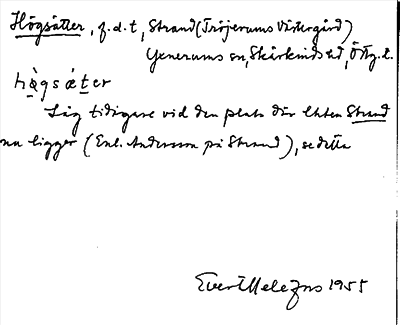 Högsätter, f.d.t, Strand (Tröjerums Västergård)
Gnerums sn, Skärkinds hd, Östg. l.
hògsǽter
Låg tidigare vid den plats där lht Strand
nu ligger (Enl. Andersson på Strand), se detta
Evert Melezus 1955